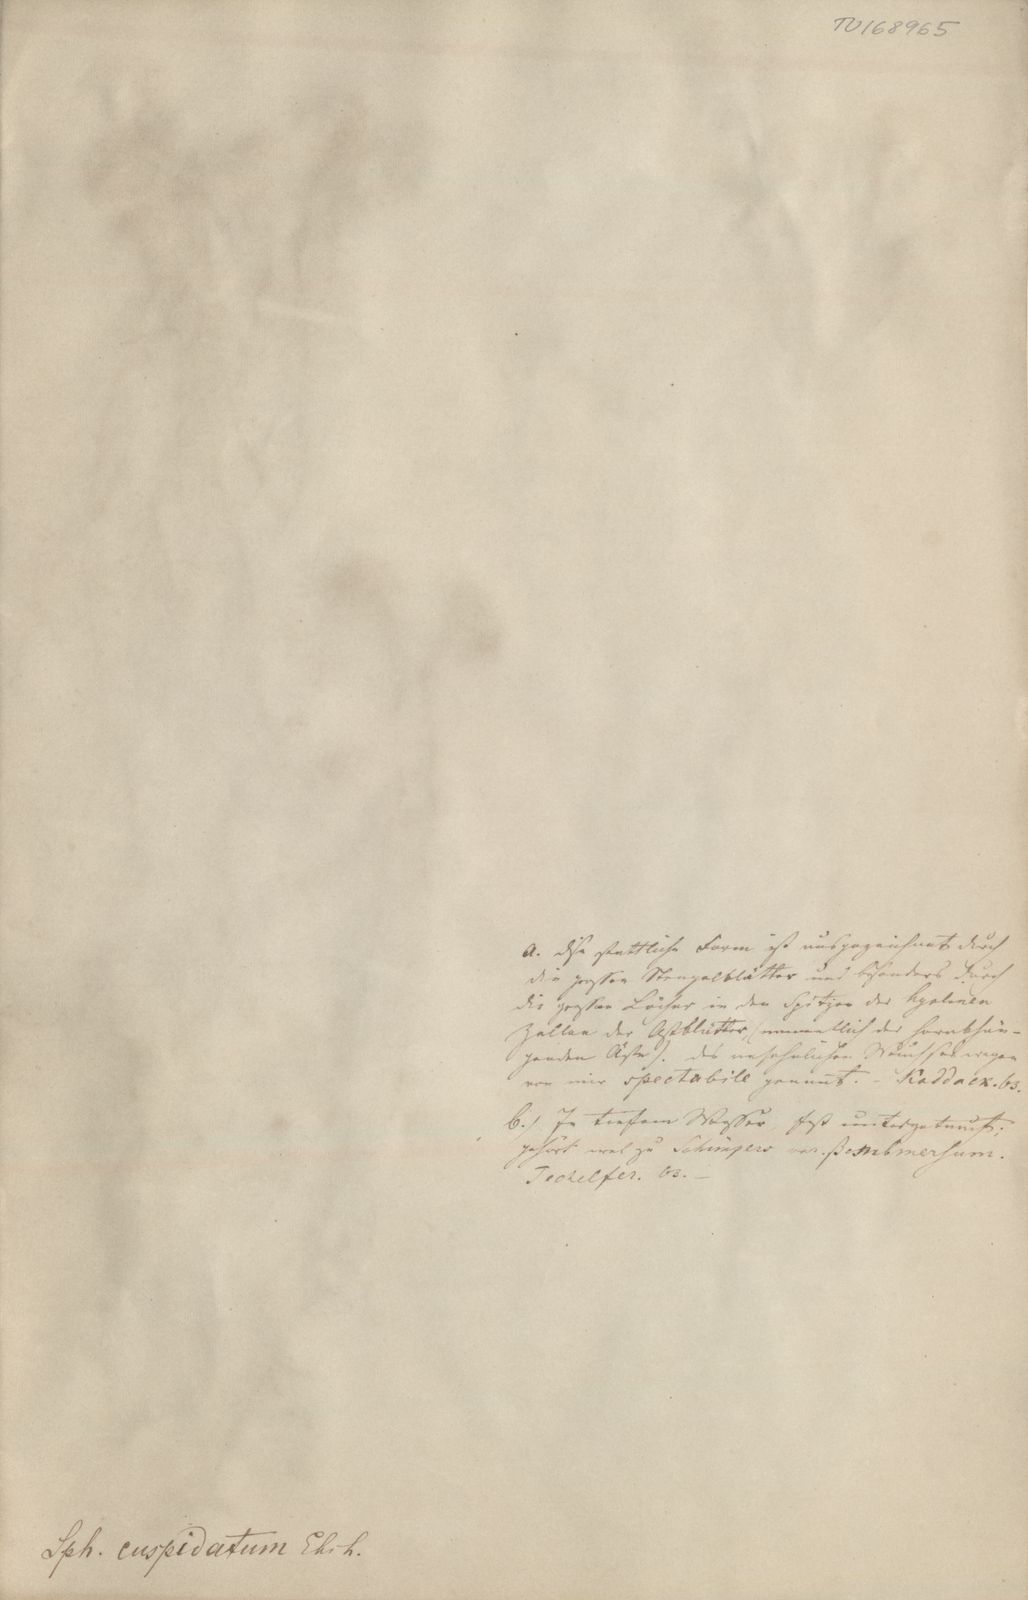 TU168965
a. Dise stattliche Form ist ausgezeichnet durch
die grossen Stengelblätter und besonders durch
die grossen Löcher in den Spitzen der hyalinen
Zellen der Astblätter, (namentlich der herabhän-
genden Äste). des ansehnlichen Wuchses wegen
von mir spectabile genannt. - Kaddack. 63.
b.) In tiefem Wasser, fast untergetaucht;
gehört wol zu Schimpers var. β submersum.
Techelfer. 63. —
Sph. cuspidatum Ehrh.